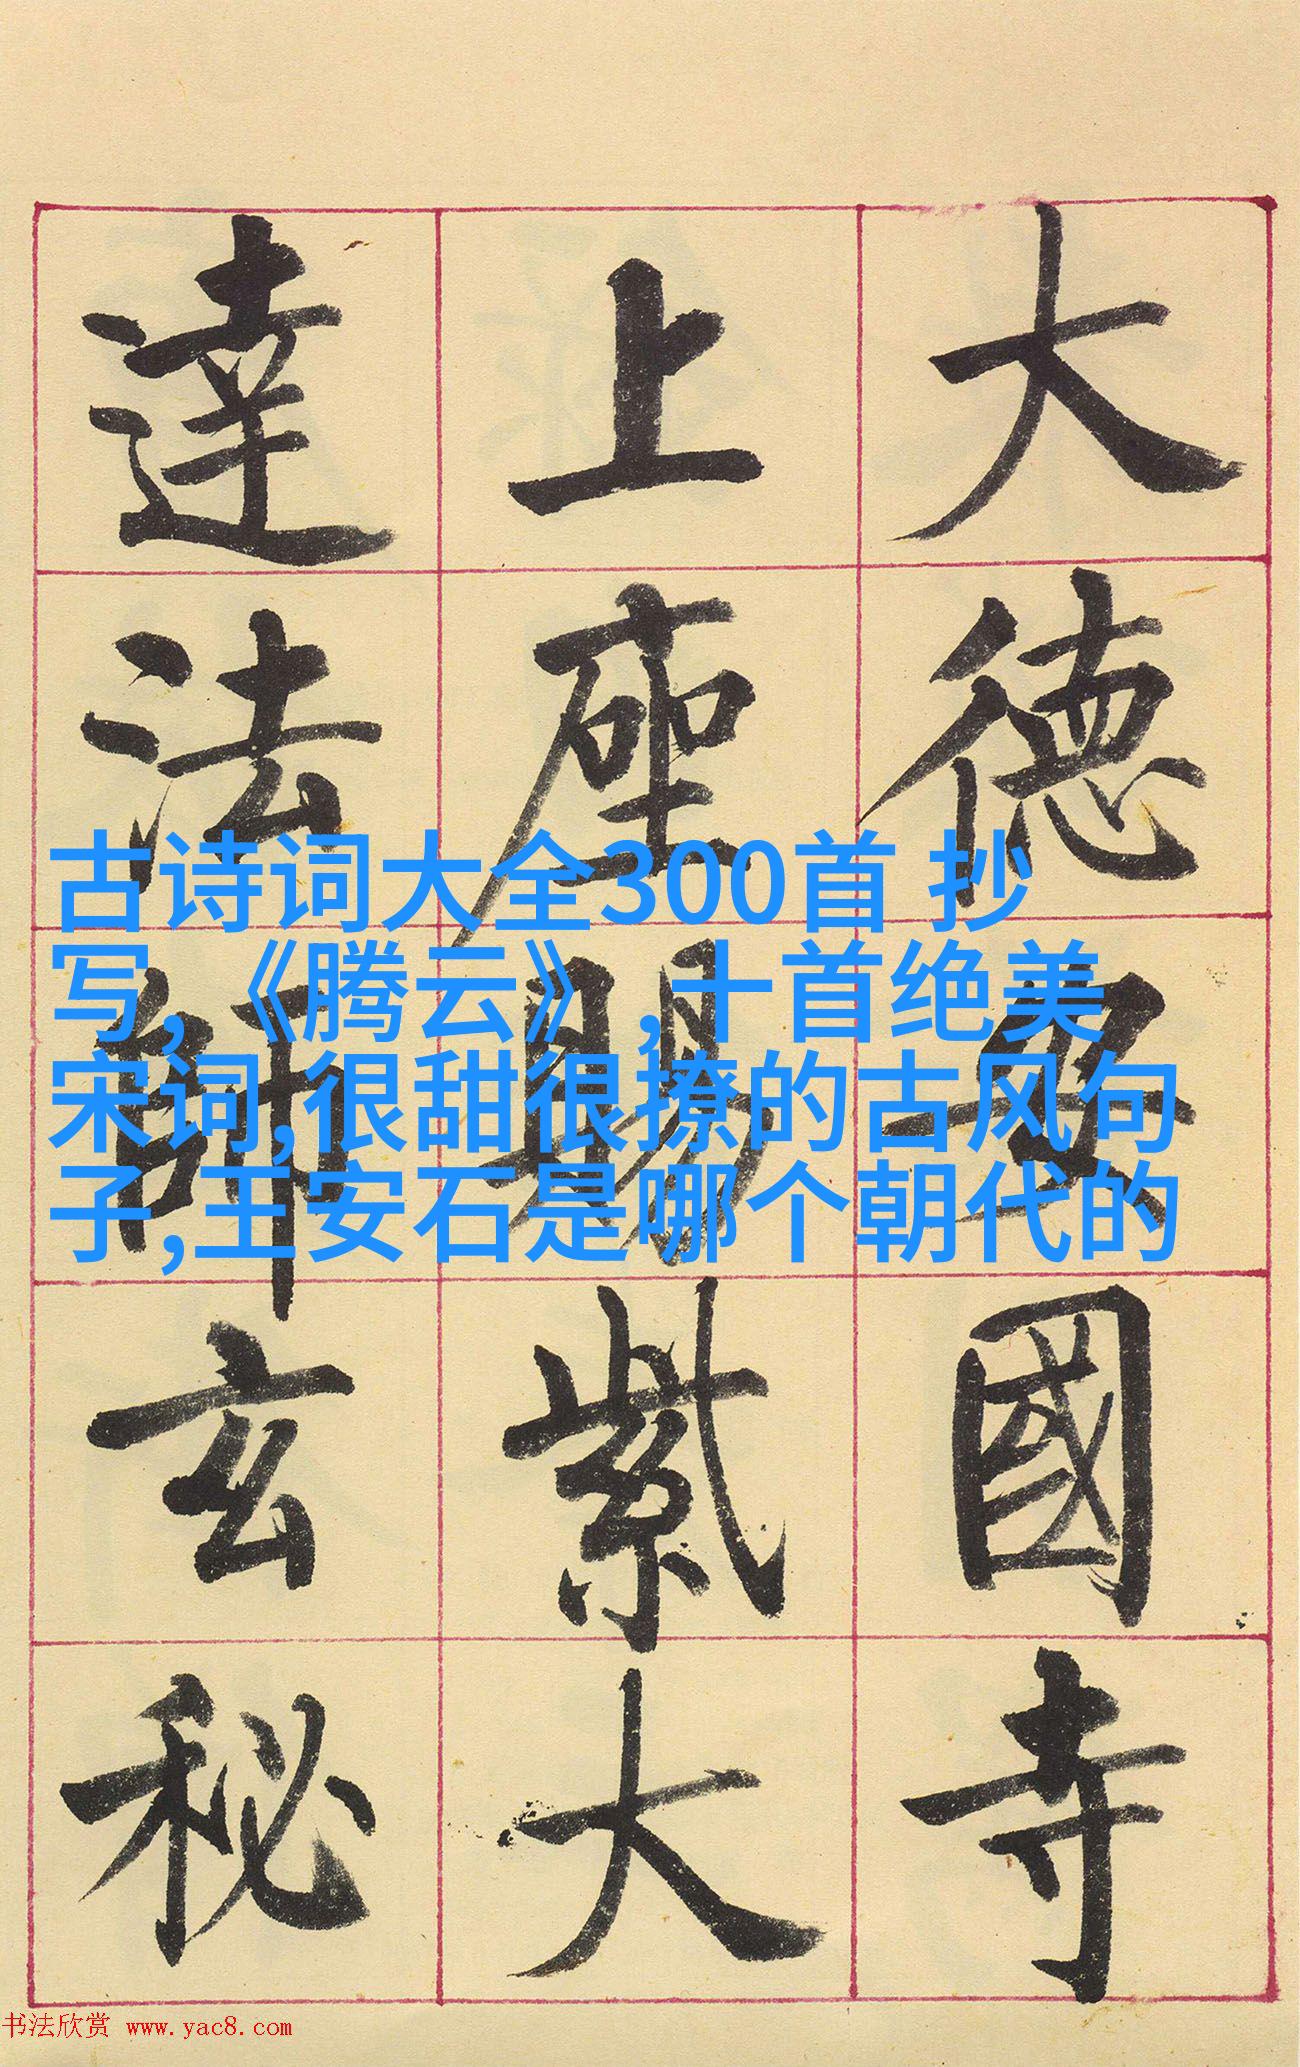 大德安國寺
上座賜紫大
達法師玄秘
古诗词大全300首 抄
写,《腾云》,十首绝美
宋词,很甜很撩的古风句
子,王安石是哪个朝代的
书法欣赏 www.yac8.com